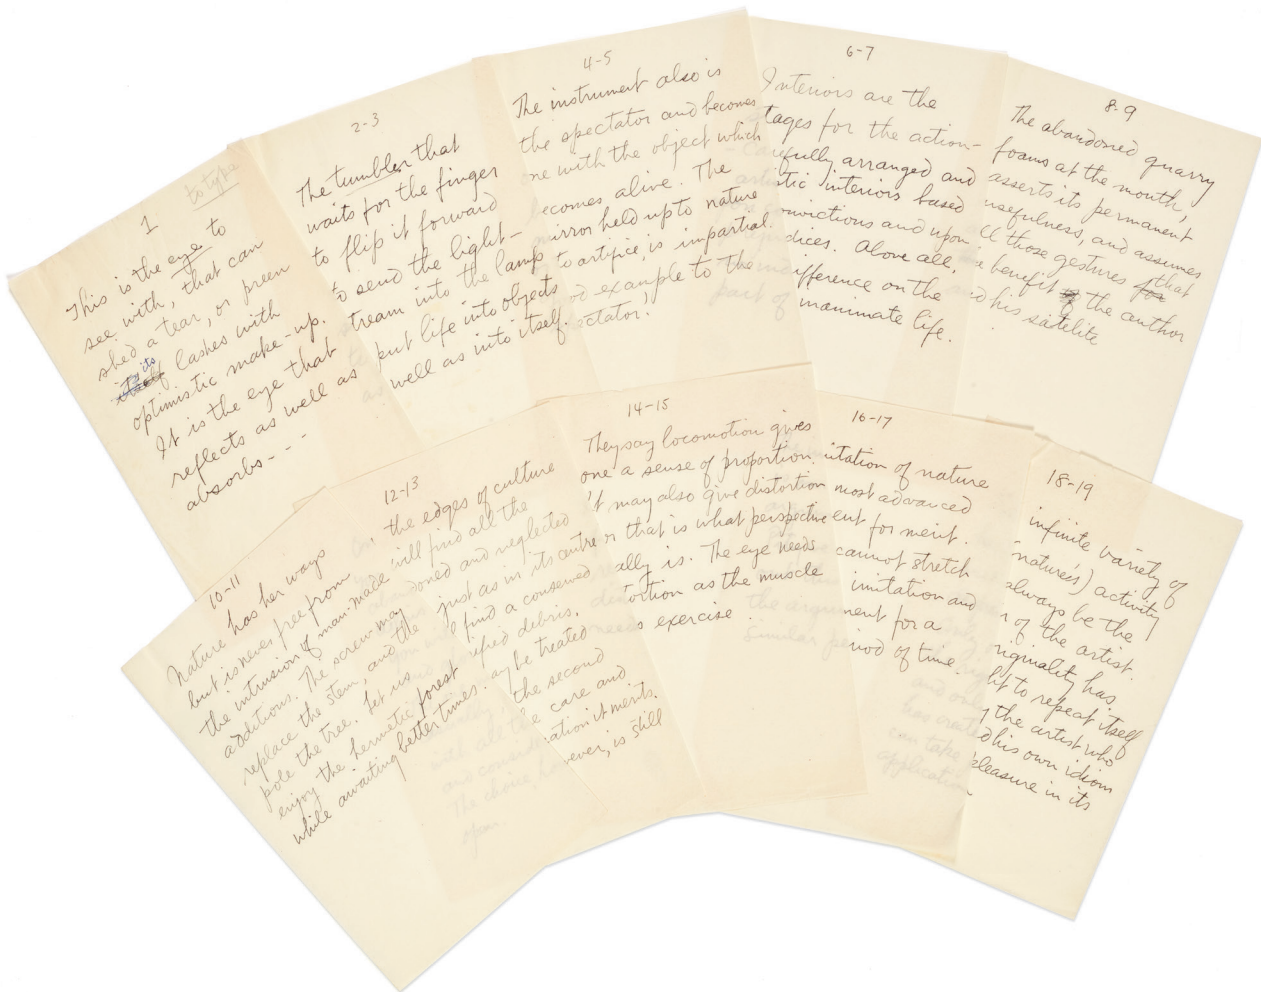 1
to type
This is the eye to
see with, that can
shed a tear, or preen
its lashes with
optimistic make-up.
It is the eye that
reflects as well as
absorbs---
2-3
The tumbler that
waits for the finger
to flip it forward
to send the light-
stream into the lamp
put life into objects
as well as into itself.
4-5
The instrument also is
the spectator and becomes
one with the object which
becomes alive. The
mirror held up to nature
to artifice, is impartial.
example to the
ctator!
6-7
Interiors are the
stages for the action-
carefully arranged and
artistic interiors based
convictions and upon
dices. Above all,
ifference on the
part of inanimate life.
8-9
The abandoned quarry
foams at the mouth,
asserts its permanent
usefulness, and assumes
ll those gestures for that
benefit the author
d his satelite
10-11
Nature has her ways
but is never free from
the intrusion of man-made
additions. The screw may
replace the stem, and the
pole the tree. Let us
enjoy the hermetic forest
while awaiting better times.
12-13
the edges of culture
will find all the
abandoned and neglected
just as in its centre
find a conserved
rified debris.
ay be treated
the second
with all the care and
consideration it merits.
The choice, however, is still
open.
14-15
They say locomotion gives
one a sense of proportion.
It may also give distortion
or that is what perspective
ally is. The eye needs
distortion as the muscle
needs exercise.
16-17
itation of nature
most advanced
ent for merit.
cannot stretch
imitation and
the argument for a
similar period of time.
18-19
infinite variety of
(nature's) activity
always be the
of the artist.
riginality has
ht to repeat itself
and only the artist who
has created his own idiom
can take pleasure in its
application